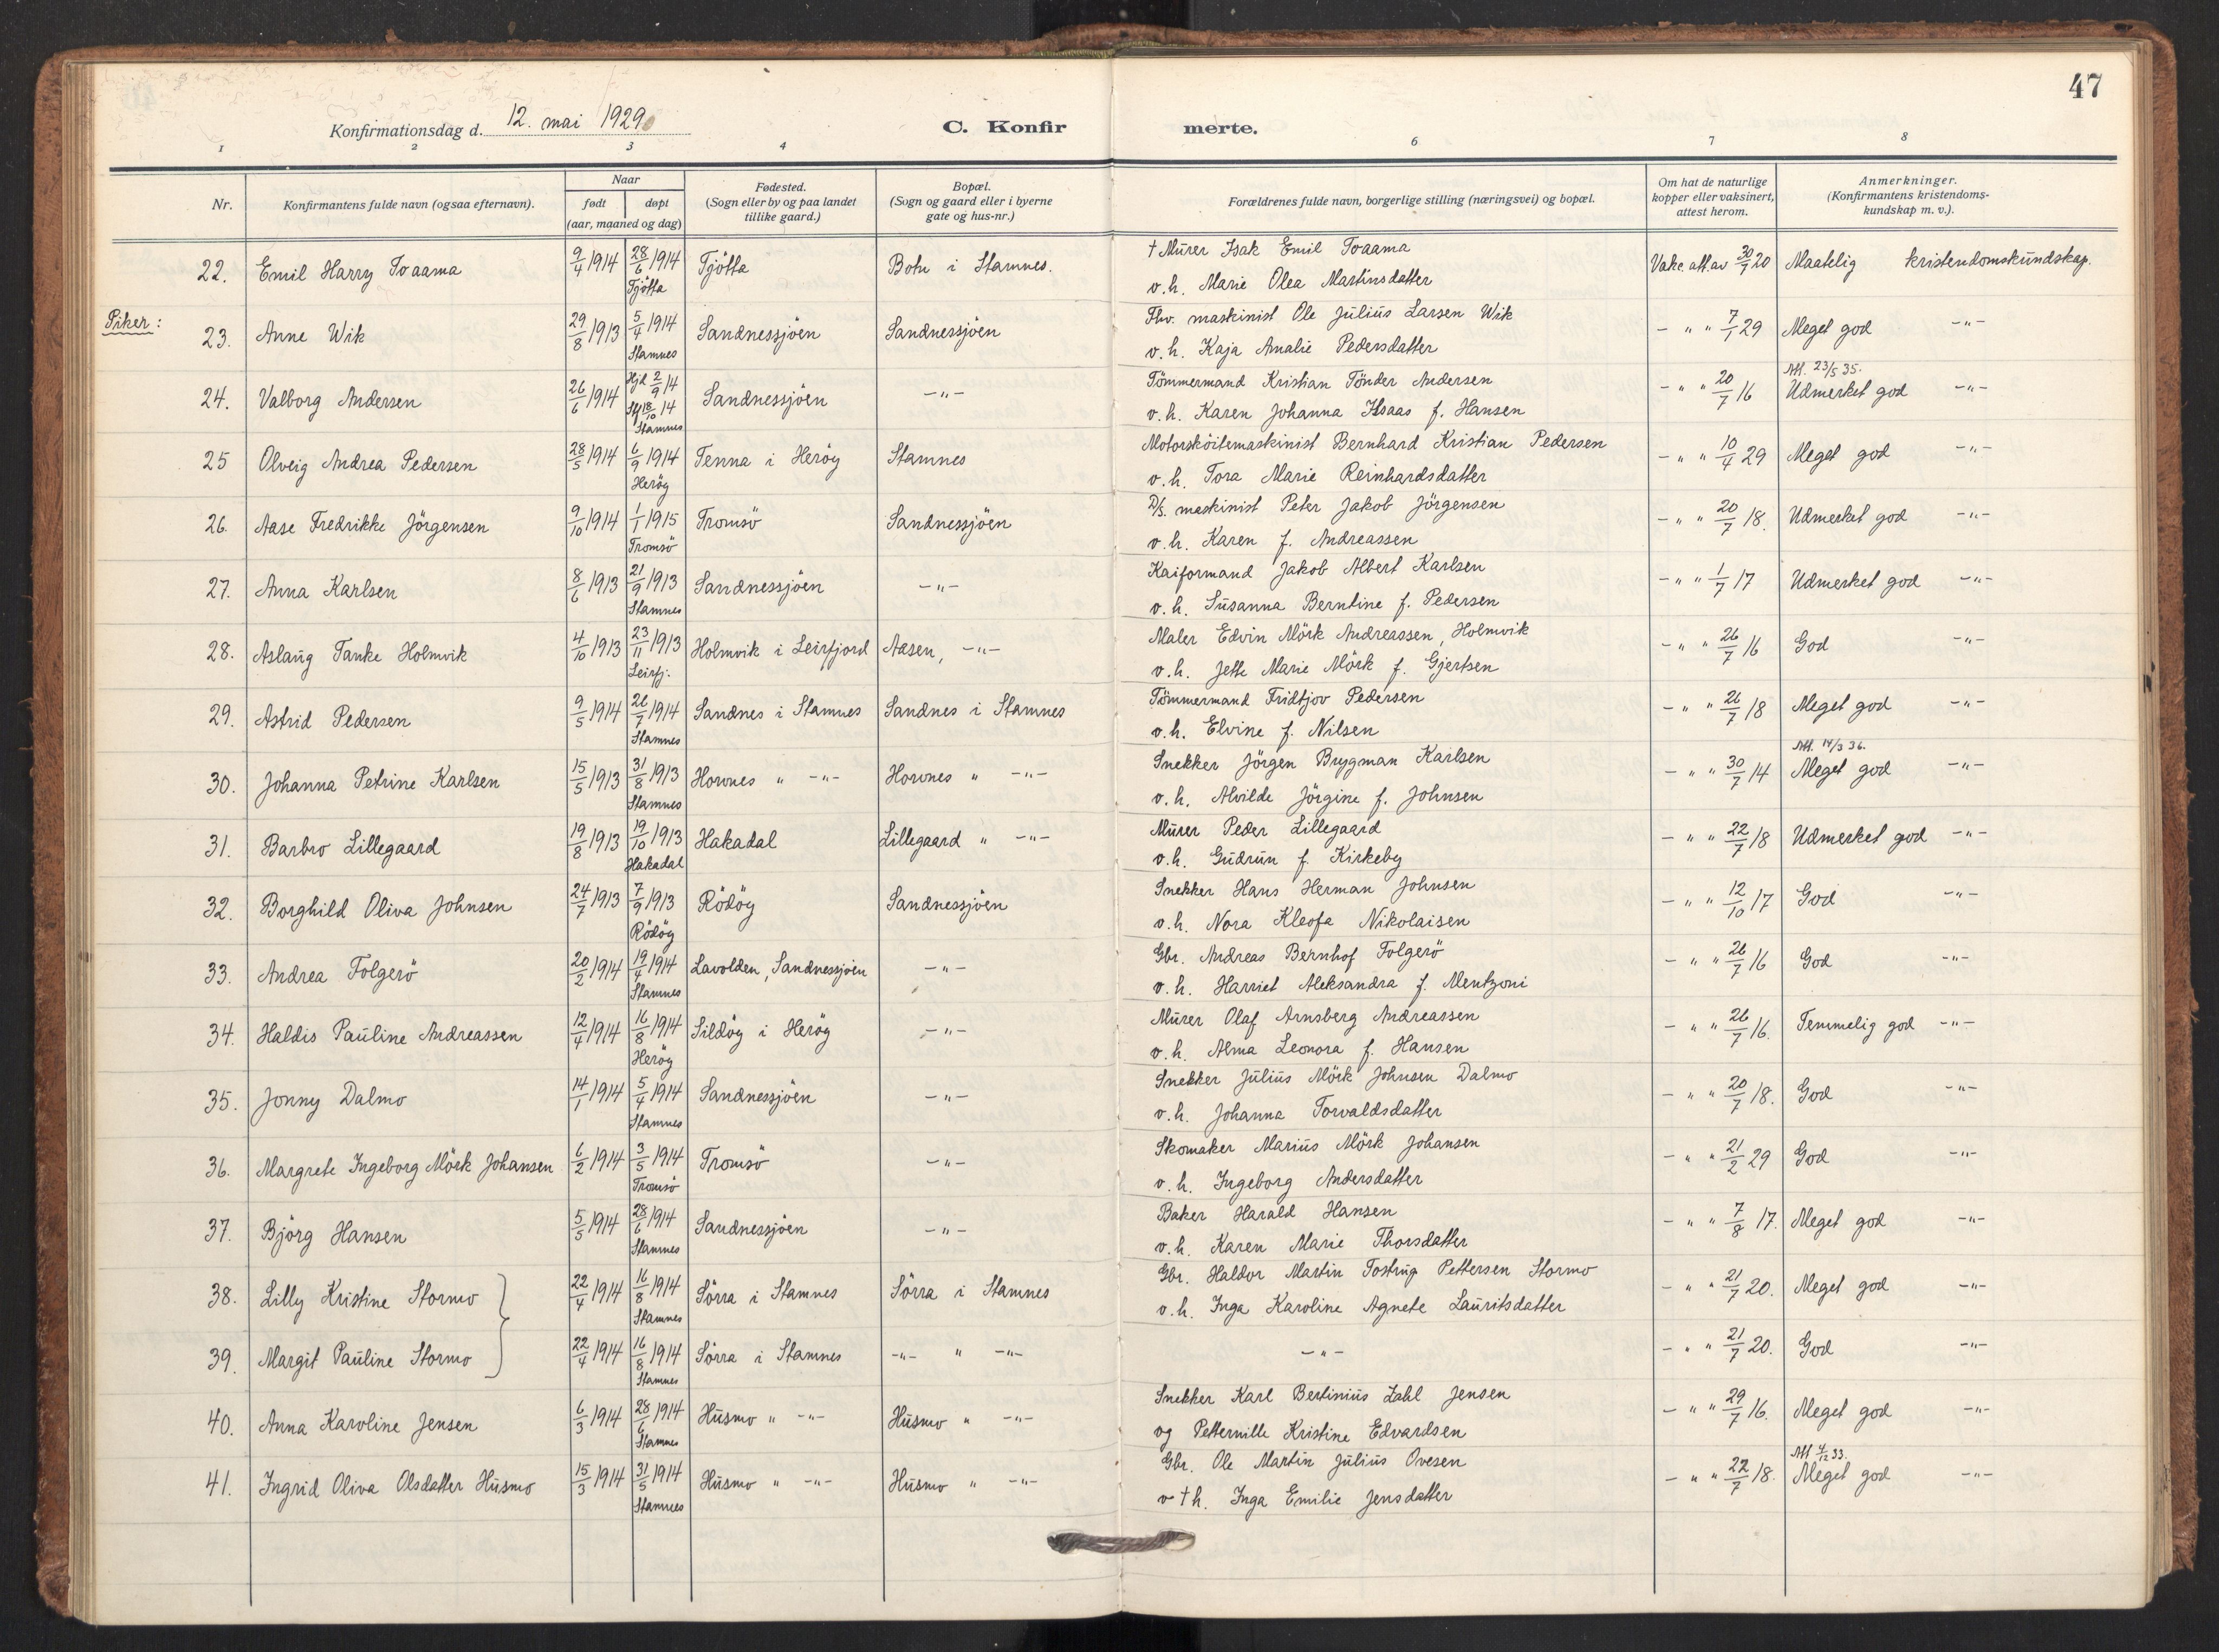 47
Konfirmationsdag d. 12. mai 1929
C. Konfirmerte.
1 2 3 4 6 7 8
Nr. | Konfirmantens fulde navn (ogsaa efternavn). | Naar født døpt (aar, maaned og dag) | Fødested. (Sogn eller by og paa landet tillike gaard.) | Bopæl. (Sogn og gaard eller i byerne gate og hus-nr.) | Forældrenes fulde navn, borgerlige stilling (næringsvei) og bopæl. | Om hat de naturlige kopper eller vaksinert, attest herom. | Anmerkninger. (Konfirmantens kristendomskundskap m. v.).
22. Emil Harry Toaama | 9/4 1914 | 28/6 1914 Tjötta | Tjötta | Botn i Stamnes. | † Murer Isak Emil Toaama | Vakc. att. av 30/7 20 | Maatelig kristendomskundskap.
v. h. Marie Olea Martinsdatter
Piker:
23. Anne Wik | 29/8 1913 | 5/4 1914 Stamnes | Sandnessjöen | Sandnessjöen | Fhv. maskinist Ole Julius Larsen Wik | - " " 7/1 29 | Meget god -"-
v. h. Kaja Amalie Pedersdatter
24. Valborg Andersen | 26/6 1914 | Hjd 2/9 14 Stf 18/10 14 Stamnes | Sandnessjöen | -"- | Tömmermand Kristian Tönder Andersen | - " " 20/7 16 | Att. 23/5 35. Udmerket god -"-
v. h. Karen Johanna Hsaas f. Hansen
25 Olveig Andrea Pedersen | 28/5 1914 | 6/9 1914 Heröy | Tenna i Heröy | Stamnes | Motorsköitemaskinist Bernhard Kristian Pedersen | - " " 10/4 29 | Meget god -"-
v. h. Tora Marie Reinhardsdatter
26. Aase Fredrikke Jörgensen | 9/10 1914 | 1/1 1915 Tromsö | Tromsö | Sandnessjöen | D/s. maskinist Peter Jakob Jörgensen | - " " 20/7 18. | Udmerket god -"-
v. h. Karen f. Andreassen
27. Anna Karlsen | 8/6 1913 | 21/9 1913 Stamnes | Sandnessjöen | -"- | Kaiformand Jakob Albert Karlsen | - " " 1/7 17 | Udmerket god -"-
v. h. Susanna Berntine f. Pedersen
28. Aslaug Tanke Holmvik | 4/10 1913 | 23/11 1913 Leirfj. | Holmvik i Leirfjord | Aasen, -"- | Maler Edvin Mörk Andreassen, Holmvik | - " " 26/7 16 | God -"-
v. h. Jette Marie Mörk f. Gjertsen
29. Astrid Pedersen | 9/5 1914 | 26/7 1914 Stamnes | Sandnes i Stamnes | Sandnes i Stamnes | Tömmermand Fridtjov Pedersen | - " " 26/7 18 | Meget god -"-
v. h. Elvine f. Nilsen
30. Johanna Petrine Karlsen | 15/5 1913 | 31/8 1913 Stamnes | Horvnes " -"- | Horvnes " -"- | Snekker Jörgen Brygman Karlsen | - " " 30/7 14 | Att. 14/3 36. Meget god -"-
v. h. Alvilde Jörgine f. Johnsen
31. Barbro Lillegaard | 19/8 1913 | 19/10 1913 Hakadal | Hakadal | Lillegaard " -"- | Murer Peder Lillegaard | - " " 22/7 18 | Udmerket god -"-
v. h. Gudrun f. Kirkeby
32. Borghild Oliva Johnsen | 24/7 1913 | 7/9 1913 Rödöy | Rödöy | Sandnessjöen | Snekker Hans Herman Johnsen | - " " 12/10 17 | God -"-
v. h. Nora Kleofa Nikolaisen
33. Andrea Folgerö | 20/2 1914 | 19/4 1914 Stamnes | Lavolden, Sandnessjöen | -"- | Gbr. Andreas Bernhof Folgerö | - " " 26/7 16 | God -"-
v. h. Harriet Aleksandra f. Mentzoni
34. Haldis Pauline Andreassen | 12/4 1914 | 16/8 1914 Heröy | Sildöy i Heröy | -"- | Murer Olaf Arnsberg Andreassen | - " " 26/7 16. | Temmelig god -"-
v. h. Alma Leonora f. Hansen
35. Jonny Dalmo | 14/1 1914 | 5/4 1914 Stamnes | Sandnessjöen | -"- | Snekker Julius Mörk Johnsen Dalmo | - " " 20/7 18. | God -"-
v. h. Johanna Torvaldsdatter
36. Margrete Ingeborg Mörk Johansen | 6/2 1914 | 3/5 1914 Tromsö | Tromsö | -"- | Skomaker Marius Mörk Johansen | - " " 21/2 29 | God -"-
v. h. Ingeborg Andersdatter
37. Björg Hansen | 5/5 1914 | 28/6 1914 Stamnes | Sandnessjöen | -"- | Baker Harald Hansen | - " " 7/8 17. | Meget god -"-
v. h. Karen Marie Thorsdatter
38. Lilly Kristine Stormo | 22/4 1914 | 16/8 1914 Stamnes | Sörra i Stamnes | Sörra i Stamnes | Gbr. Haldor Martin Tostrup Pettersen Stormo | - " " 21/7 20. | Meget god -"-
v. h. Inga Karoline Agnete Lauritsdatter
39. Margit Pauline Stormo | 22/4 1914 | 16/8 1914 Stamnes | Sörra i Stamnes | -"- " -"- | -"- | - " " 21/7 20. | God -"-
40. Anna Karoline Jensen | 6/3 1914 | 28/6 1914 Stamnes | Husmo " -"- | Husmo " -"- | Snekker Karl Bertinius Zahl Jensen | - " " 29/7 16. | Meget god -"-
og Petternille Kristine Edvardsen
41. Ingrid Oliva Olsdatter Husmo | 15/3 1914 | 31/5 1914 Stamnes | Husmo " -"- | Husmo " -"- | Gbr. Ole Martin Julius Ovesen | - " " 22/7 18. | Att 4/12 33. Meget god -"-
v † h. Inga Emilie Jensdatter